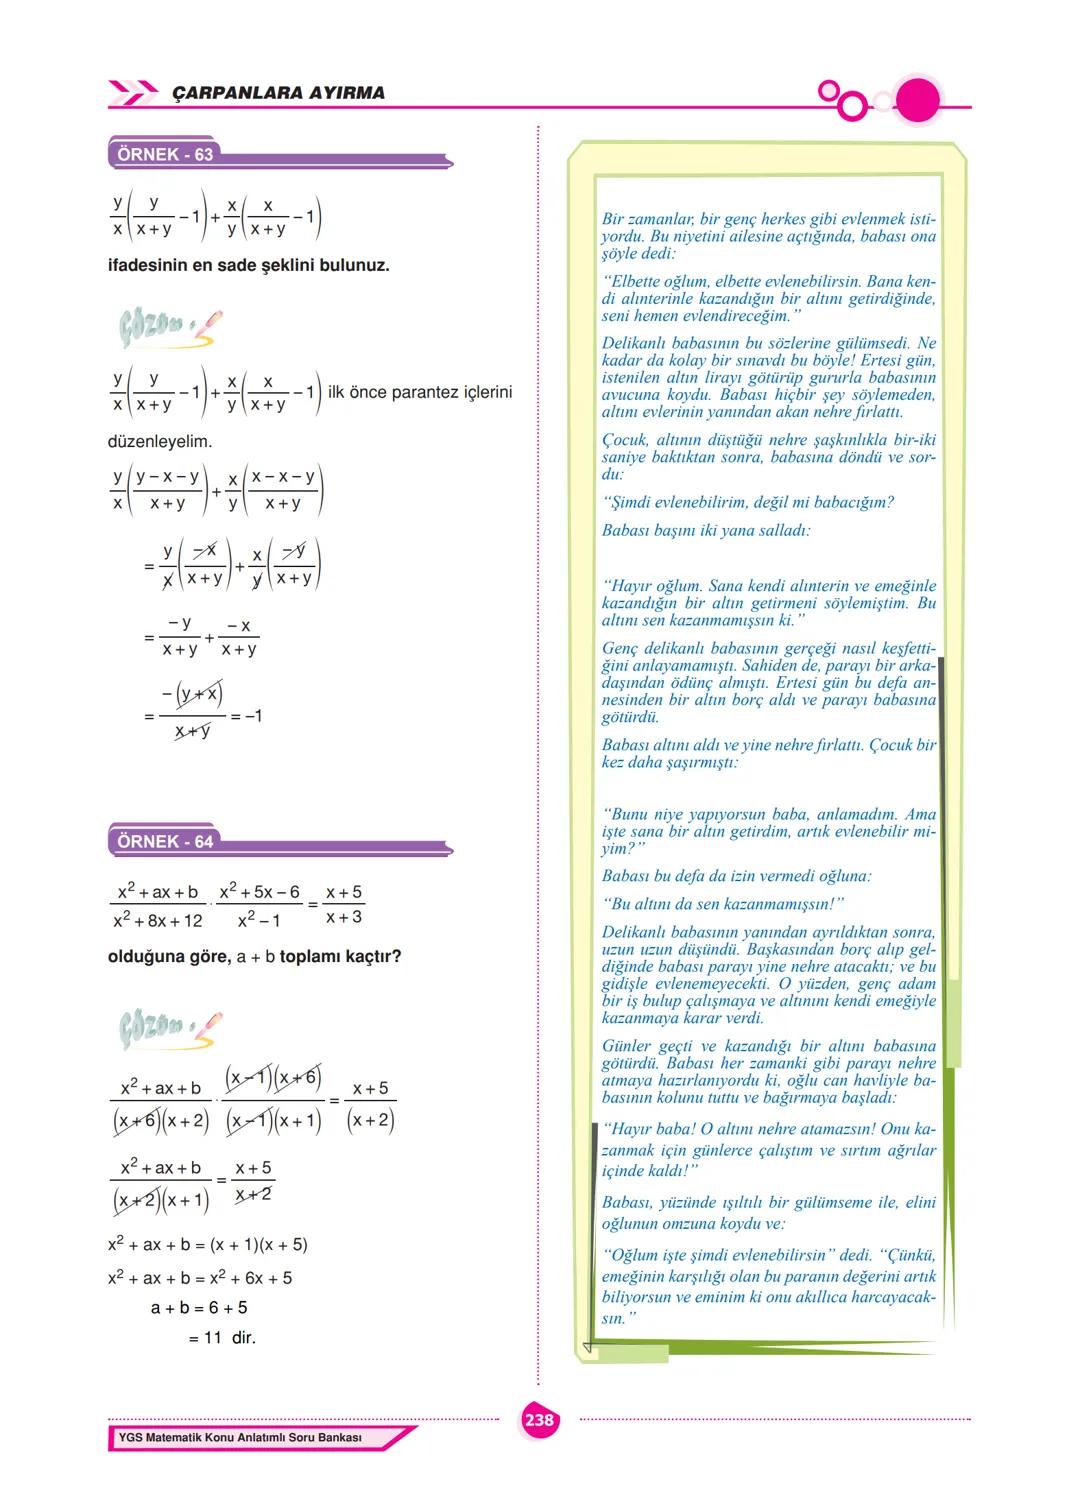 ÇARPANLARA AYIRMA
ÖRNEK - 63
y/x (y/(x + y) – 1) + x/y (x/(x + y) – 1)
ifadesinin en sade şeklini bulunuz.
ÇÖZÜM :
y/x (y/(x + y) – 1) + x/y (x/(x + y) – 1) ilk önce parantez içlerini
düzenleyelim.
y/x ((y – x – y)/(x + y)) + x/y ((x – x – y)/(x + y))
= y/x (–x/(x + y)) + x/y (–y/(x + y))
= –y/(x + y) + –x/(x + y)
= –(y + x)/(x + y) = –1
ÖRNEK - 64
(x² + ax + b)/(x² + 8x + 12) · (x² + 5x – 6)/(x² – 1) = (x + 5)/(x + 3)
olduğuna göre, a + b toplamı kaçtır?
ÇÖZÜM :
(x² + ax + b)/((x + 6)(x + 2)) · ((x – 1)(x + 6))/((x – 1)(x + 1)) = (x + 5)/(x + 2)
(x² + ax + b)/((x + 2)(x + 1)) = (x + 5)/(x + 2)
x² + ax + b = (x + 1)(x + 5)
x² + ax + b = x² + 6x + 5
a + b = 6 + 5
= 11 dir.
Bir zamanlar, bir genç herkes gibi evlenmek isti-
yordu. Bu niyetini ailesine açtığında, babası ona
şöyle dedi:
“Elbette oğlum, elbette evlenebilirsin. Bana ken-
di alınterinle kazandığın bir altını getirdiğinde,
seni hemen evlendireceğim.”
Delikanlı babasının bu sözlerine gülümsedi. Ne
kadar da kolay bir sınavdı bu böyle! Ertesi gün,
istenilen altın lirayı götürüp gururla babasının
avucuna koydu. Babası hiçbir şey söylemeden,
altını evlerinin yanından akan nehre fırlattı.
Çocuk, altının düştüğü nehre şaşkınlıkla bir-iki
saniye baktıktan sonra, babasına döndü ve sor-
du:
“Şimdi evlenebilirim, değil mi babacığım?
Babası başını iki yana salladı:
“Hayır oğlum. Sana kendi alınterin ve emeğinle
kazandığın bir altın getirmeni söylemiştim. Bu
altını sen kazanmamışsın ki.”
Genç delikanlı babasının gerçeği nasıl keşfetti-
ğini anlayamamıştı. Sahiden de, parayı bir arka-
daşından ödünç almıştı. Ertesi gün bu defa an-
nesinden bir altın borç aldı ve parayı babasına
götürdü.
Babası altını aldı ve yine nehre fırlattı. Çocuk bir
kez daha şaşırmıştı:
“Bunu niye yapıyorsun baba, anlamadım. Ama
işte sana bir altın getirdim, artık evlenebilir mi-
yim?”
Babası bu defa da izin vermedi oğluna:
“Bu altını da sen kazanmamışsın!”
Delikanlı babasının yanından ayrıldıktan sonra,
uzun uzun düşündü. Başkasından borç alıp gel-
diğinde babası parayı yine nehre atacaktı; ve bu
gidişle evlenemeyecekti. O yüzden, genç adam
bir iş bulup çalışmaya ve altınını kendi emeğiyle
kazanmaya karar verdi.
Günler geçti ve kazandığı bir altını babasına
götürdü. Babası her zamanki gibi parayı nehre
atmaya hazırlanıyordu ki, oğlu can havliyle ba-
basının kolunu tuttu ve bağırmaya başladı:
“Hayır baba! O altını nehre atamazsın! Onu ka-
zanmak için günlerce çalıştım ve sırtım ağrılar
içinde kaldı!”
Babası, yüzünde ışıltılı bir gülümseme ile, elini
oğlunun omzuna koydu ve:
“Oğlum işte şimdi evlenebilirsin” dedi. “Çünkü,
emeğinin karşılığı olan bu paranın değerini artık
biliyorsun ve eminim ki onu akıllıca harcayacak-
sın.”
238
YGS Matematik Konu Anlatımlı Soru Bankası